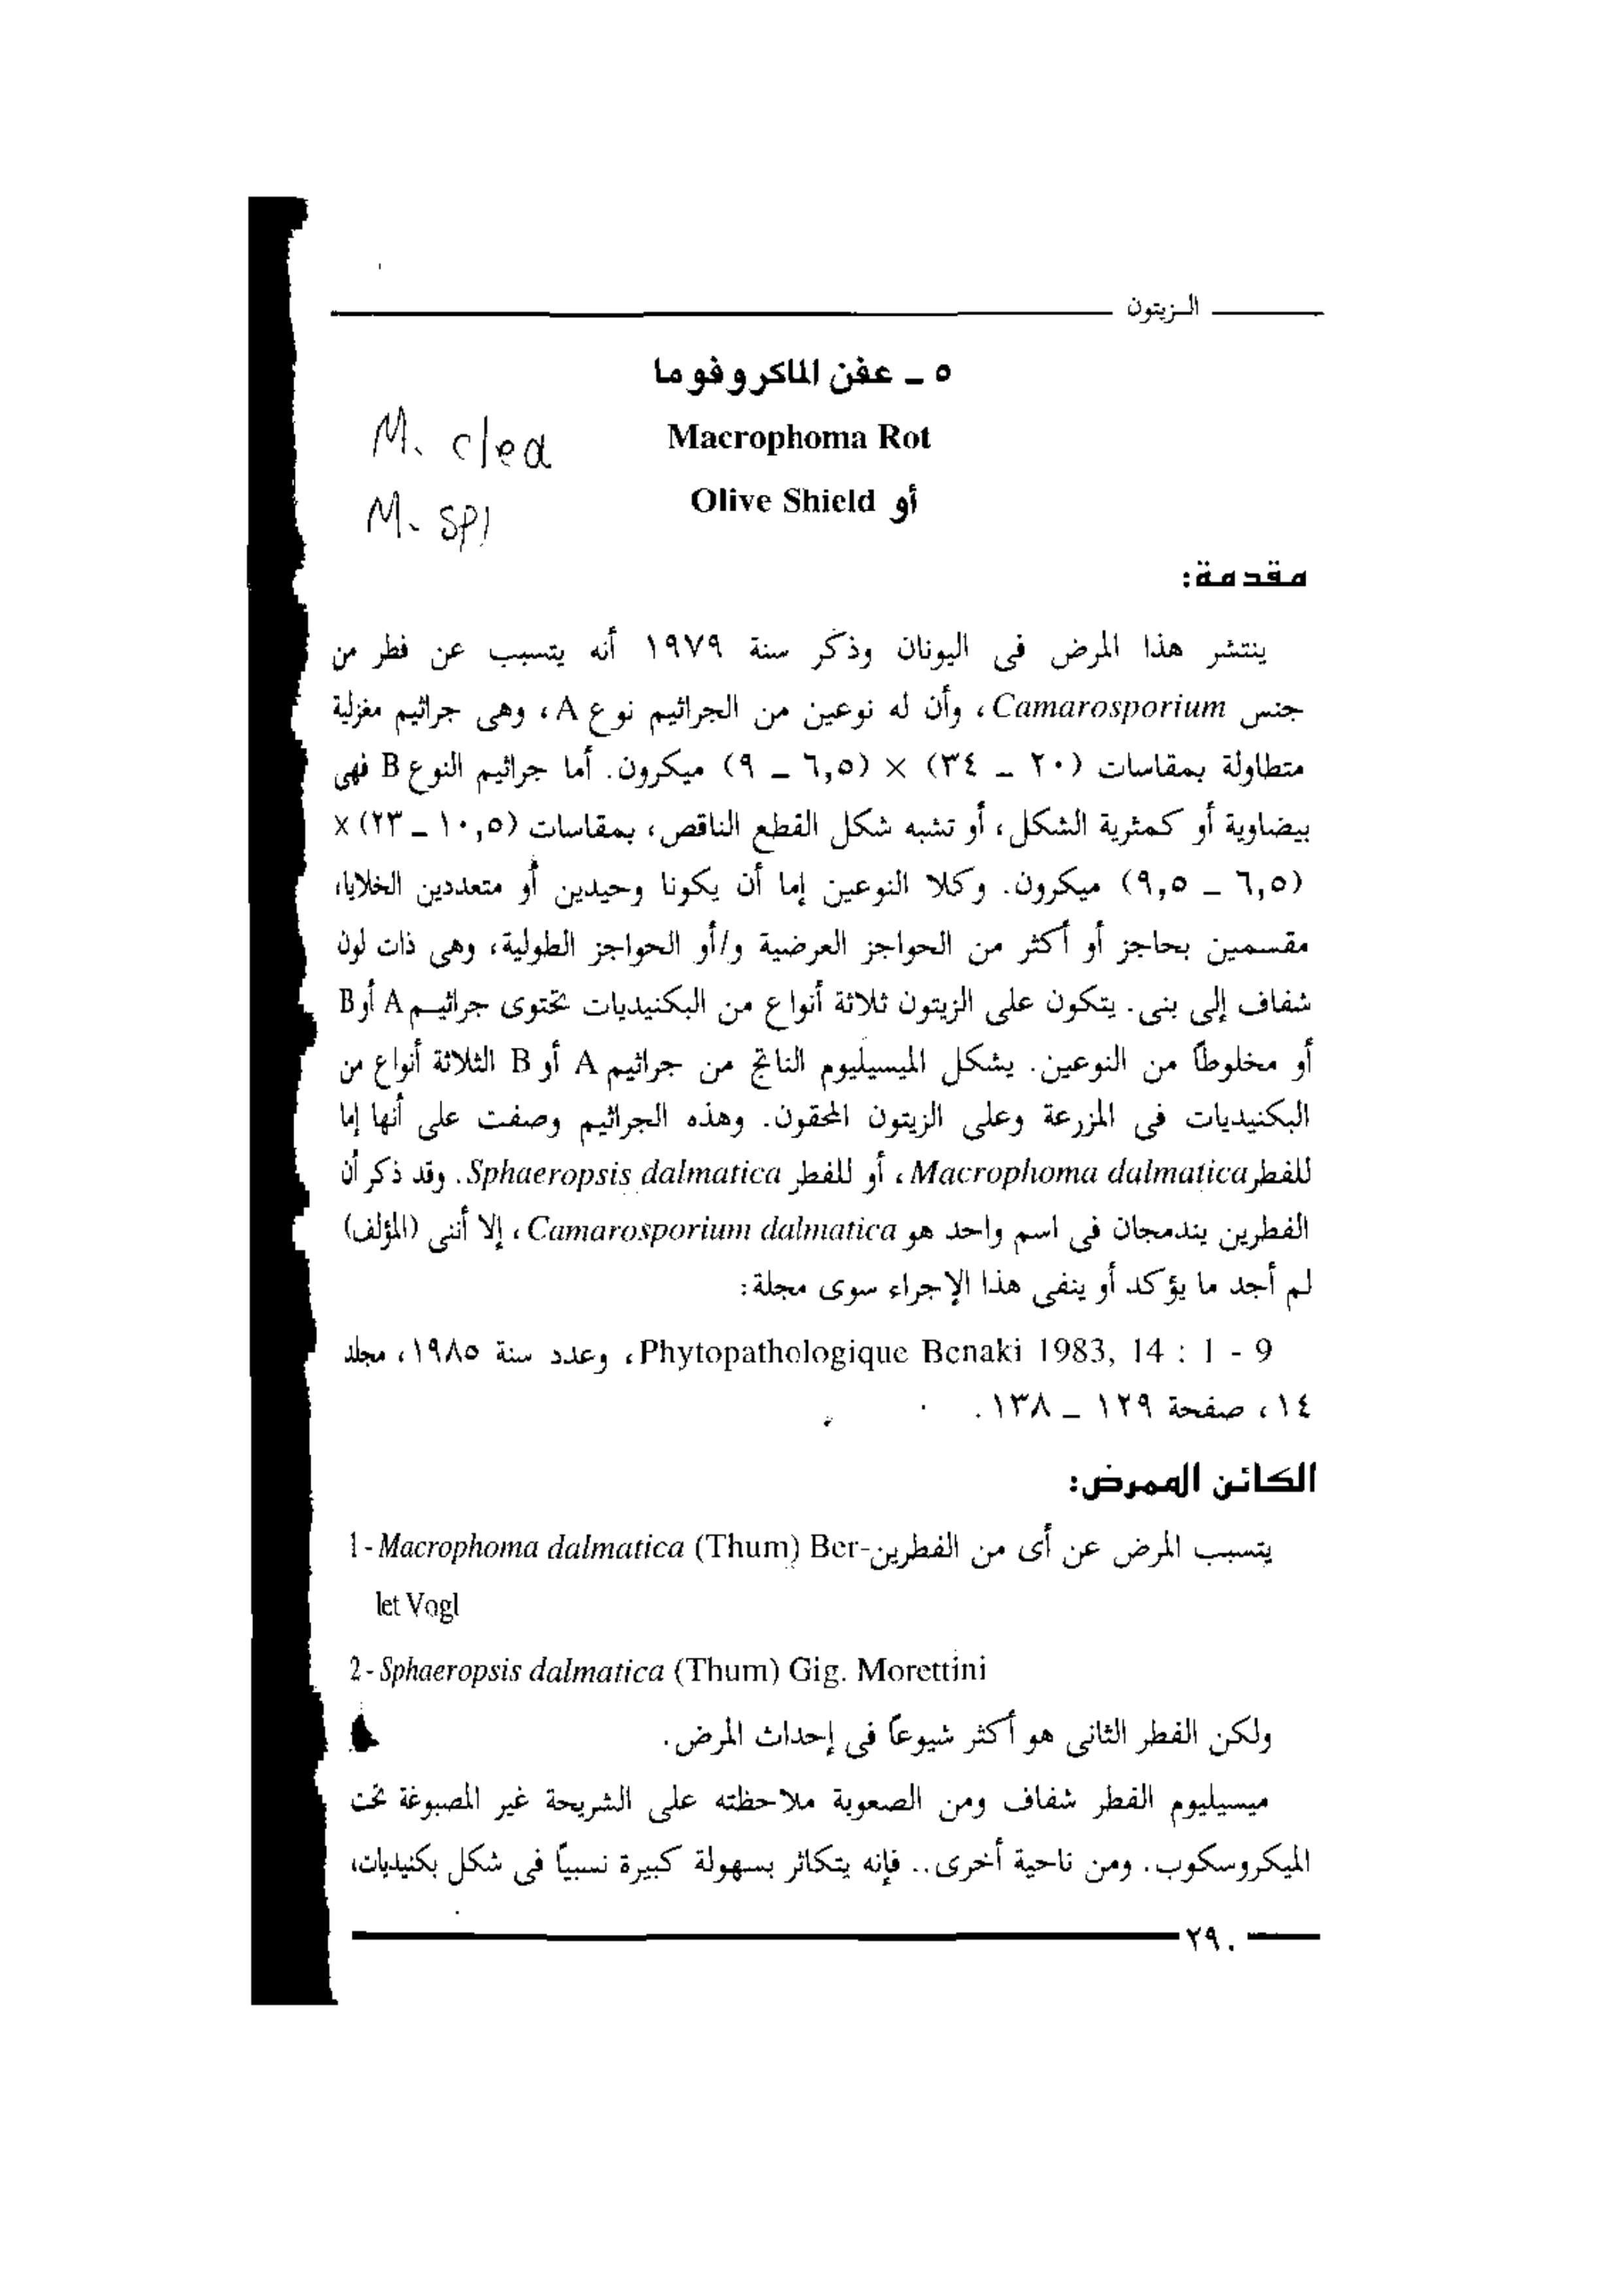 الـزيتون
٥ ـ عفن الماكروفوما
Macrophoma Rot
M. clea
أو Olive Shield
M. spl
مقدمة:
ينتشر هذا المرض فى اليونان وذكر سنة ١٩٧٩ أنه يتسبب عن فطر من
جنس Camarosporium، وأن له نوعين من الجراثيم نوع A، وهى جراثيم مغزلية
متطاولة بمقاسات (٢٠ ـ ٣٤) × (٦,٥ ـ ٩) ميكرون. أما جراثيم النوع B فهى
بيضاوية أو كمثرية الشكل، أو تشبه شكل القطع الناقص، بمقاسات (١٠,٥ ـ ٢٣) ×
(٦,٥ ـ ٩,٥) ميكرون. وكلا النوعين إما أن يكونا وحيدين أو متعددين الخلايا،
مقسمين بحاجز أو أكثر من الحواجز العرضية و/أو الحواجز الطولية، وهى ذات لون
شفاف إلى بنى. يتكون على الزيتون ثلاثة أنواع من البكنيديات تحتوى جراثيـم A أو B
أو مخلوطاً من النوعين. يشكل الميسيليوم الناتج من جراثيم A أو B الثلاثة أنواع من
البكنيديات فى المزرعة وعلى الزيتون المحقون. وهذه الجراثيم وصفت على أنها إما
للفطر Macrophoma dalmatica، أو للفطر Sphaeropsis dalmatica. وقد ذكر أن
الفطرين يندمجان فى اسم واحد هو Camarosporium dalmatica، إلا أننى (المؤلف)
لم أجد ما يؤكد أو ينفى هذا الإجراء سوى مجلة:
Phytopathologique Benaki 1983, 14 : 1 - 9، وعدد سنة ١٩٨٥، مجلد
١٤، صفحة ١٢٩ ـ ١٣٨.
الكائن الممرض:
يتسبب المرض عن أى من الفطرين 1- Macrophoma dalmatica (Thum) Ber-
let Vogl
2- Sphaeropsis dalmatica (Thum) Gig. Morettini
ولكن الفطر الثانى هو أكثر شيوعاً فى إحداث المرض.
ميسيليوم الفطر شفاف ومن الصعوبة ملاحظته على الشريحة غير المصبوغة تحت
الميكروسكوب. ومن ناحية أخرى.. فإنه يتكاثر بسهولة كبيرة نسبياً فى شكل بكنيديات،
٢٩٠